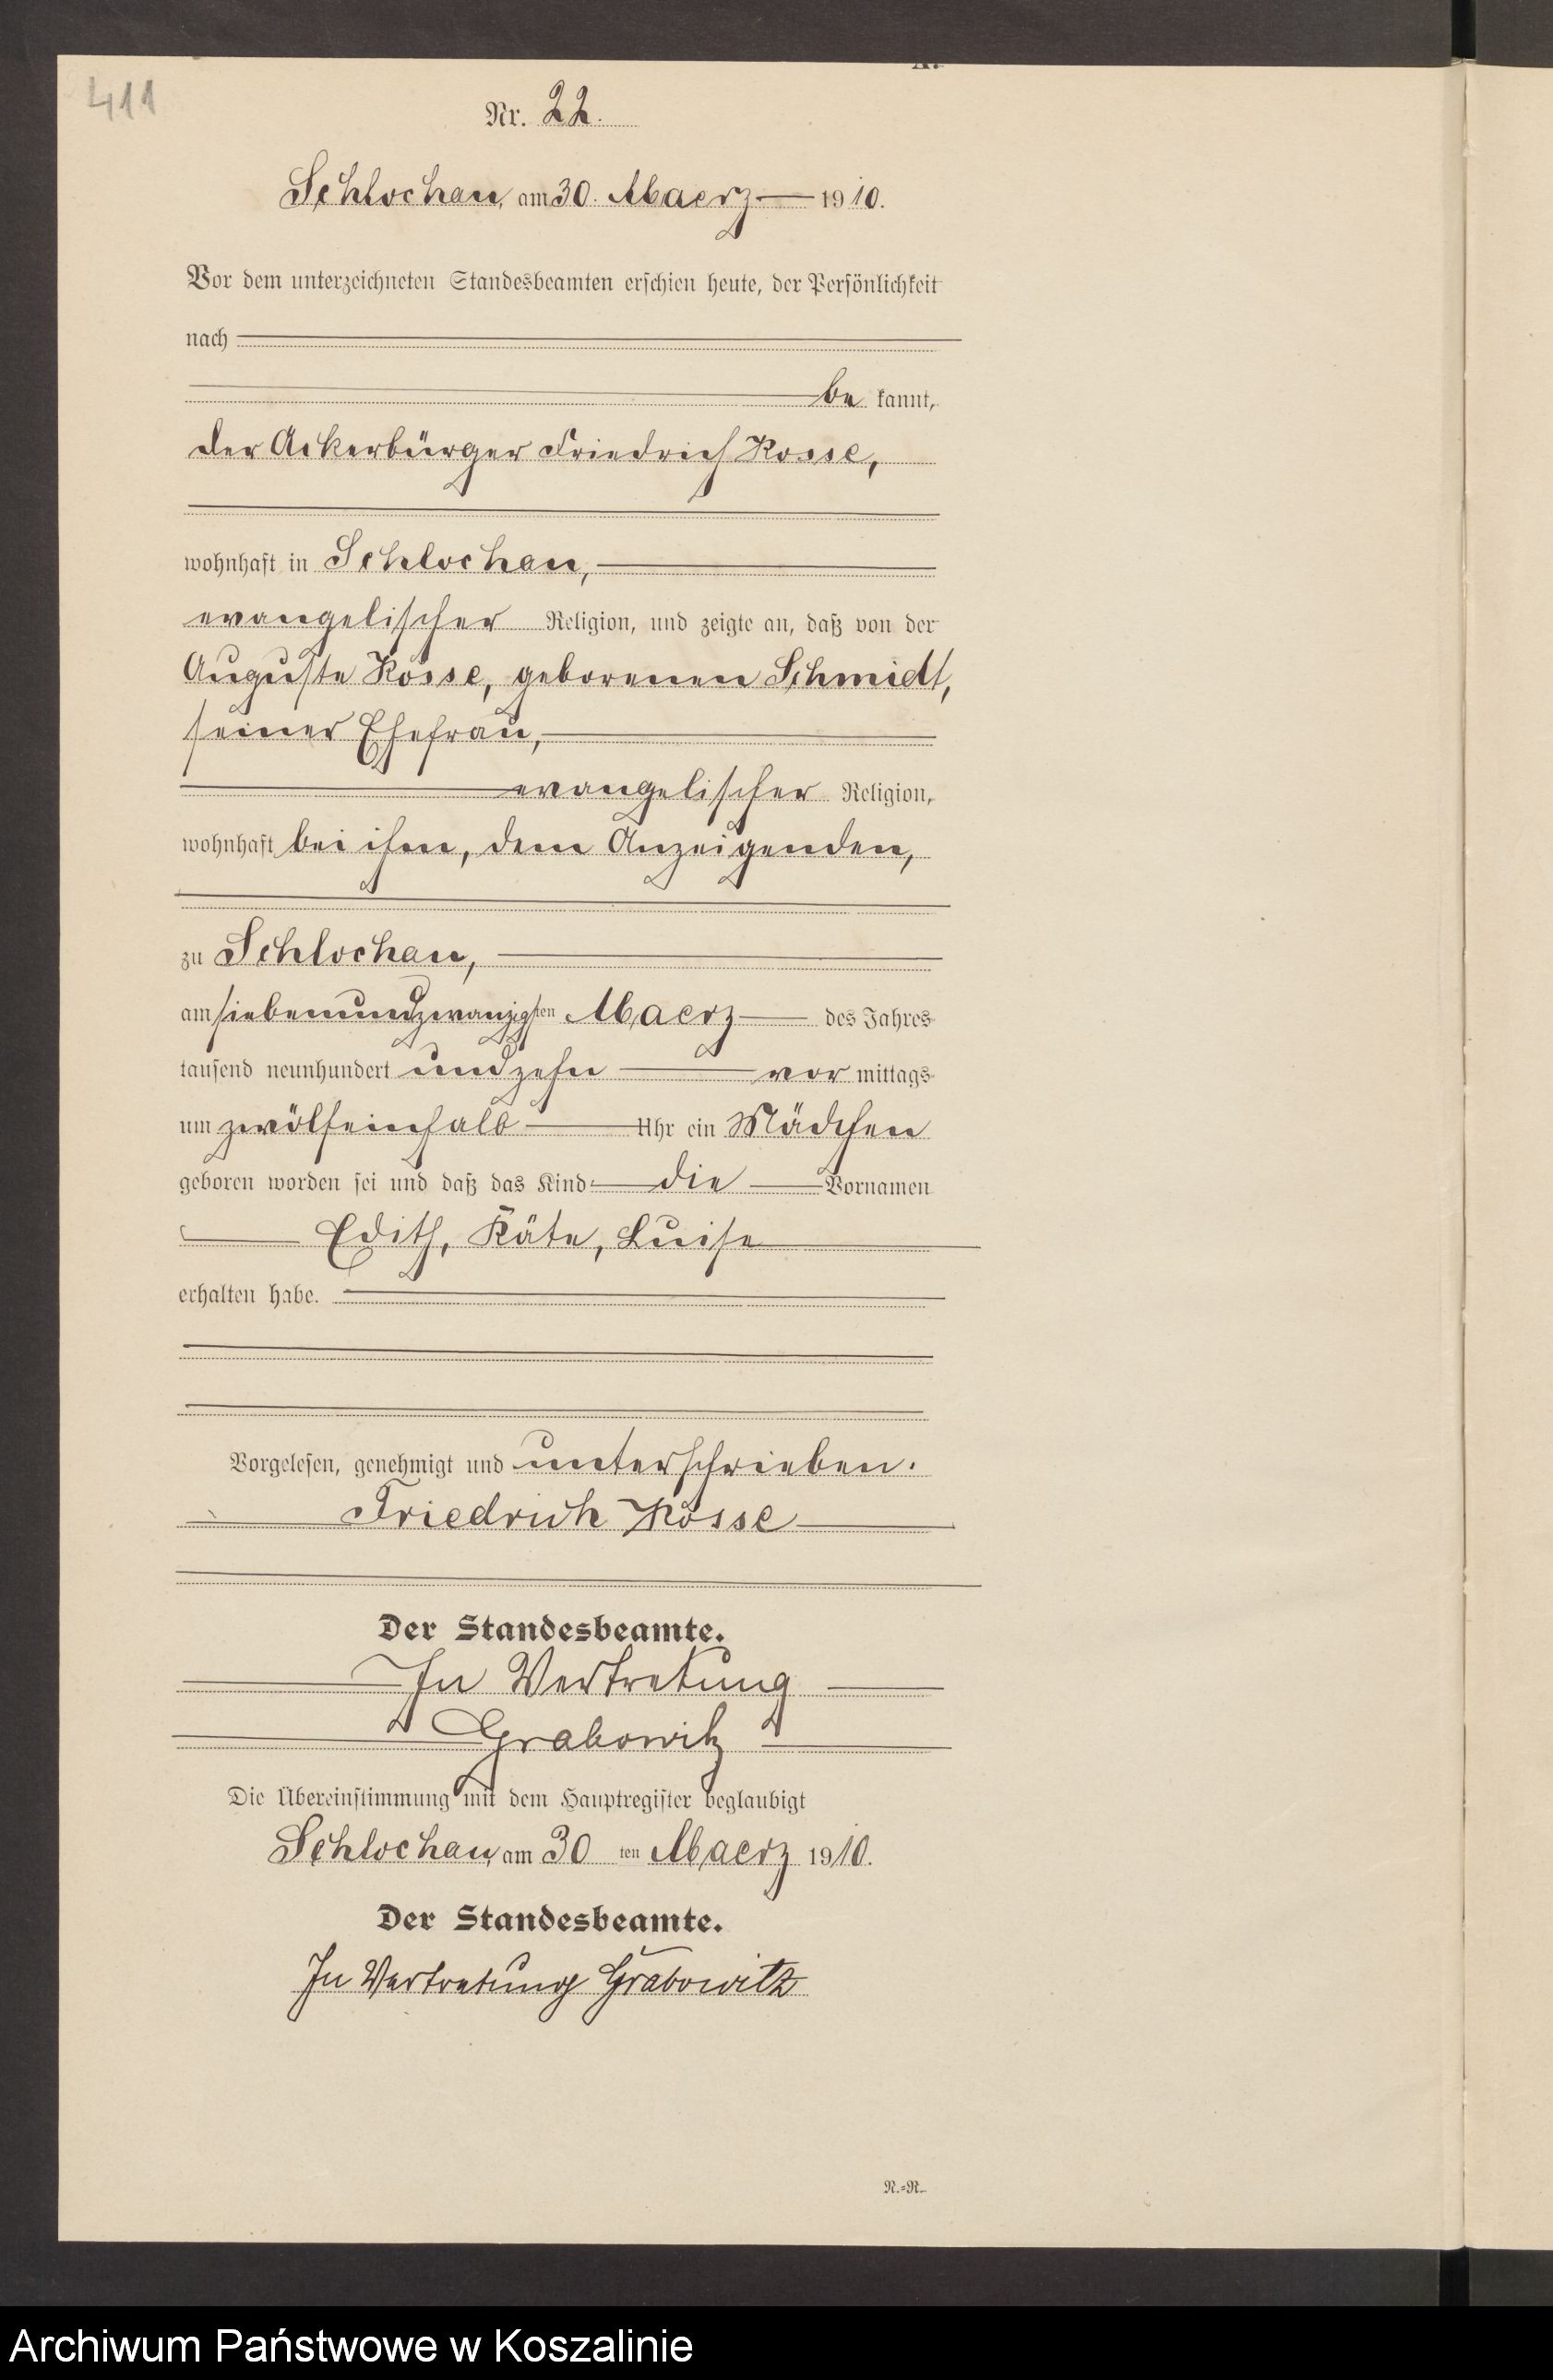 411
Nr. 22.
Schlochau, am 30. Maerz 1910.
Vor dem unterzeichneten Standesbeamten erschien heute, der Persönlichkeit
nach
be kannt,
der Ackerbürger Friedrich Kosse,
wohnhaft in Schlochau,
evangelischer Religion, und zeigte an, daß von der
Auguste Kosse, geborenen Schmidt,
seiner Ehefrau,
evangelischer Religion,
wohnhaft bei ihm, dem Anzeigenden,
zu Schlochau,
am siebenundzwanzigsten Maerz des Jahres
tausend neunhundert und zehn vor mittags
um zwölfeinhalb Uhr ein Mädchen
geboren worden sei und daß das Kind die Vornamen
Edith, Käte, Luise
erhalten habe.
Vorgelesen, genehmigt und unterschrieben.
Friedrich Kosse
Der Standesbeamte.
In Vertretung
Grabowitz
Die Übereinstimmung mit dem Hauptregister beglaubigt
Schlochau, am 30 ten Maerz 1910.
Der Standesbeamte.
In Vertretung Grabowitz
R.=R.
Archiwum Państwowe w Koszalinie